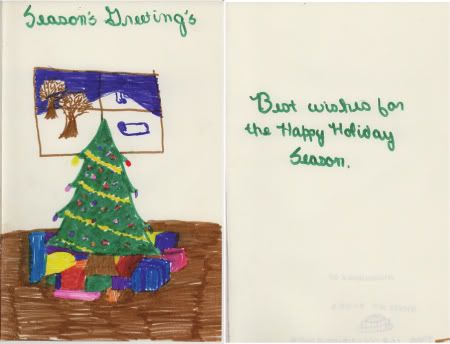 Season's Greeting's
Best wishes for
the Happy Holiday
Season.